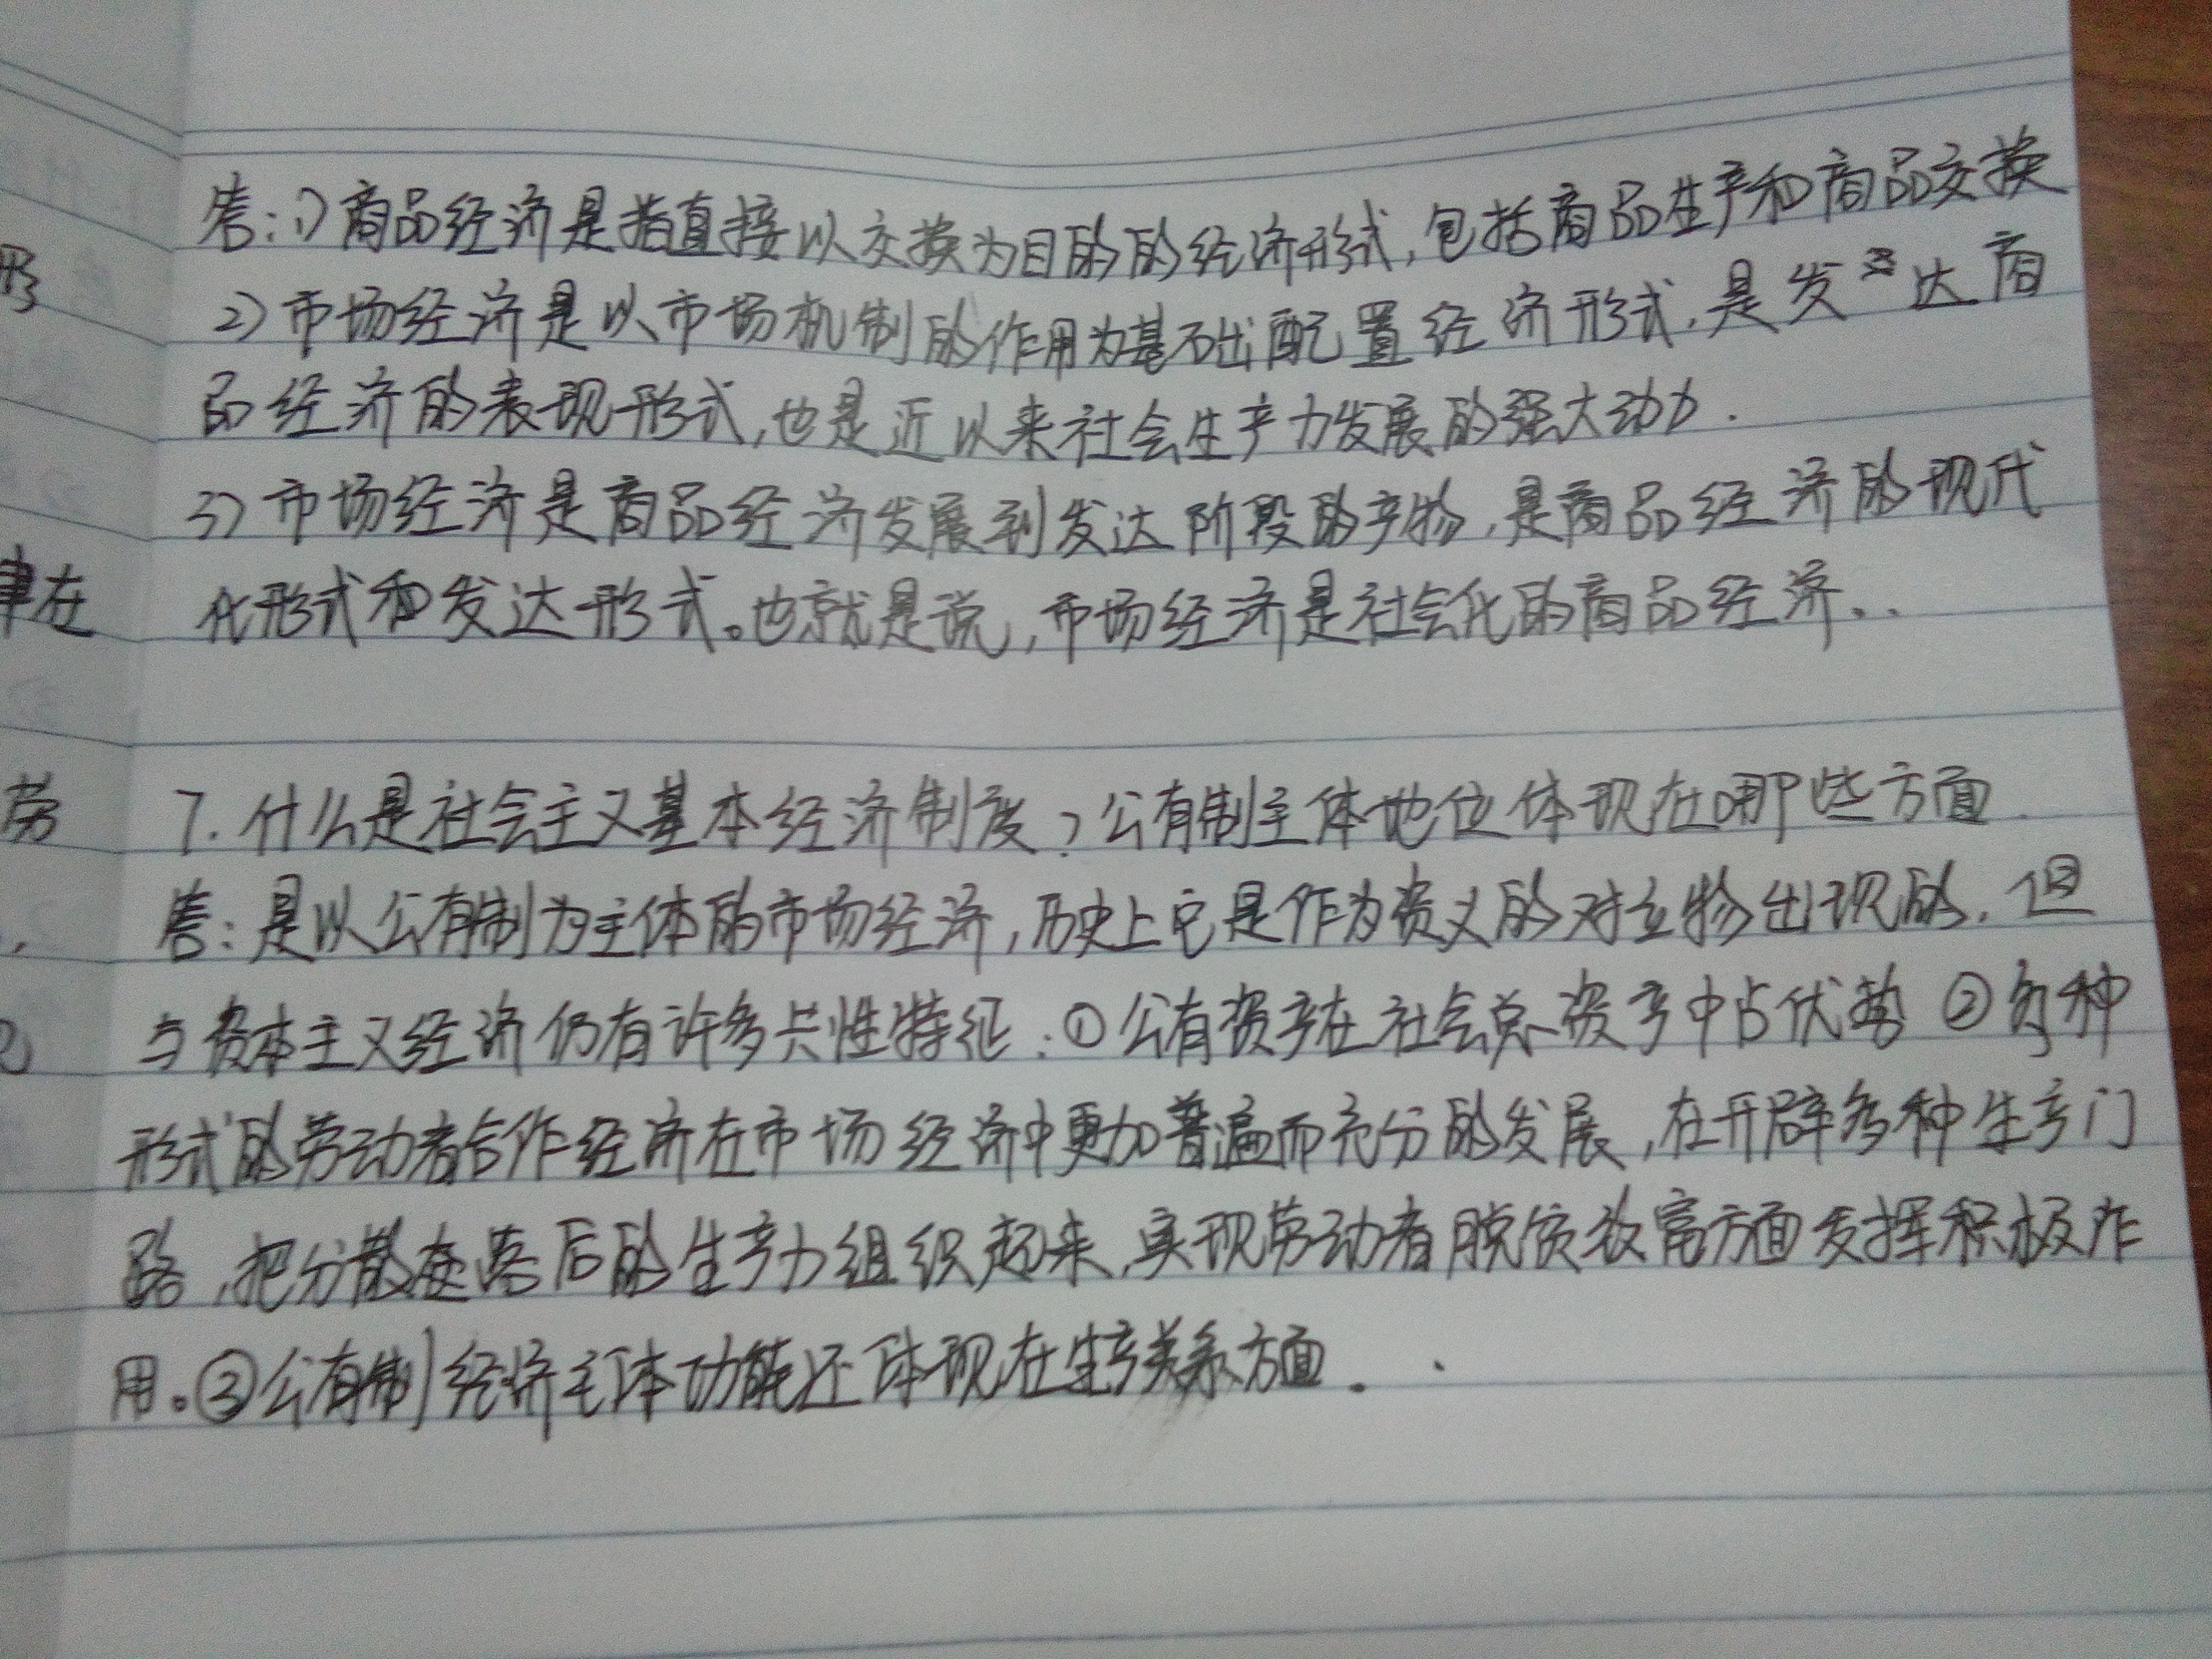 答：1）商品经济是指直接以交换为目的的经济形式，包括商品生产和商品交换
2）市场经济是以市场机制的作用为基础配置经济形式，是发达商
品经济的表现形式，也是近以来社会生产力发展的强大动力．
3）市场经济是商品经济发展到发达阶段的产物，是商品经济的现代
化形式和发达形式。也就是说，市场经济是社会化的商品经济．．
7．什么是社会主义基本经济制度？公有制主体地位体现在哪些方面．
答：是以公有制为主体的市场经济，历史上它是作为资义的对立物出现的．但
与资本主义经济仍有许多共性特征：①公有资产在社会总资产中占优势 ②多种
形式的劳动者合作经济在市场经济中更加普遍而充分的发展，在开辟多种生产门
路，把分散落后的生产力组织起来，实现劳动者脱贫致富方面发挥积极作
用。③公有制经济主体功能还体现在生产关系方面．
形
律在
劳